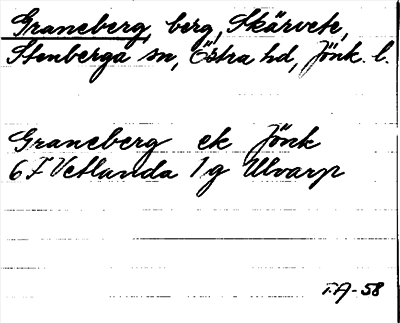 Graneberg, berg, Skärvete,
Stenberga sn, Östra hd, Jönk. l.
Graneberg ek Jönk
6F Vetlanda 1g Ulvarp
T.A-58